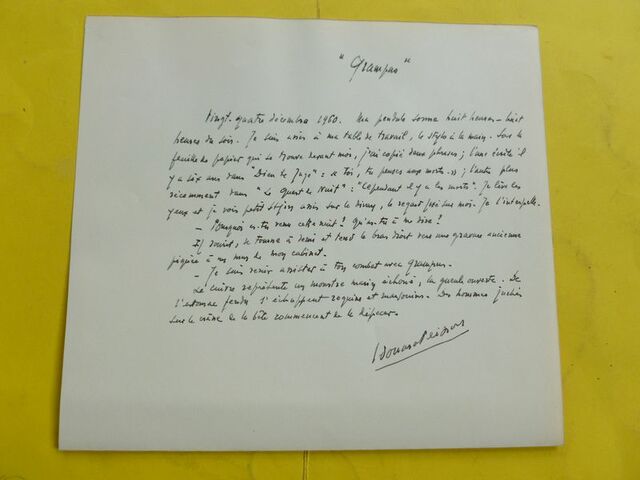 "Grampus"
Vingt-quatre décembre 1960. Ma pendule sonne huit heures - huit
heures du soir. Je suis assis à ma table de travail, le stylo à la main. Sur la
feuille de papier qui se trouve devant moi, j'ai copié deux phrases; l'une écrite il
y a six ans dans "Dieu te juge": "Toi, tu penses aux morts..."; l'autre plus
récemment dans "Le Quart de Nuit": "Cependant il y a les morts". Je lève les
yeux et je vois petit assis sur le divan, le regard fixé sur moi. Je l'interpelle.
- Pourquoi es-tu venu cette nuit? Qu'as-tu à me dire?
Il sourit, se tourne à demi et tend le bras droit vers une gravure ancienne
piquée à un mur de mon cabinet.
- Je suis venu assister à ton combat avec Grampus.
Le cuivre représente un monstre marin échoué, la gueule ouverte. De
l'estomac fendu s'échappent requins et marsouins. Des hommes juchés
sur le crâne de la bête commencent de le dépecer.
Edouard Peisson